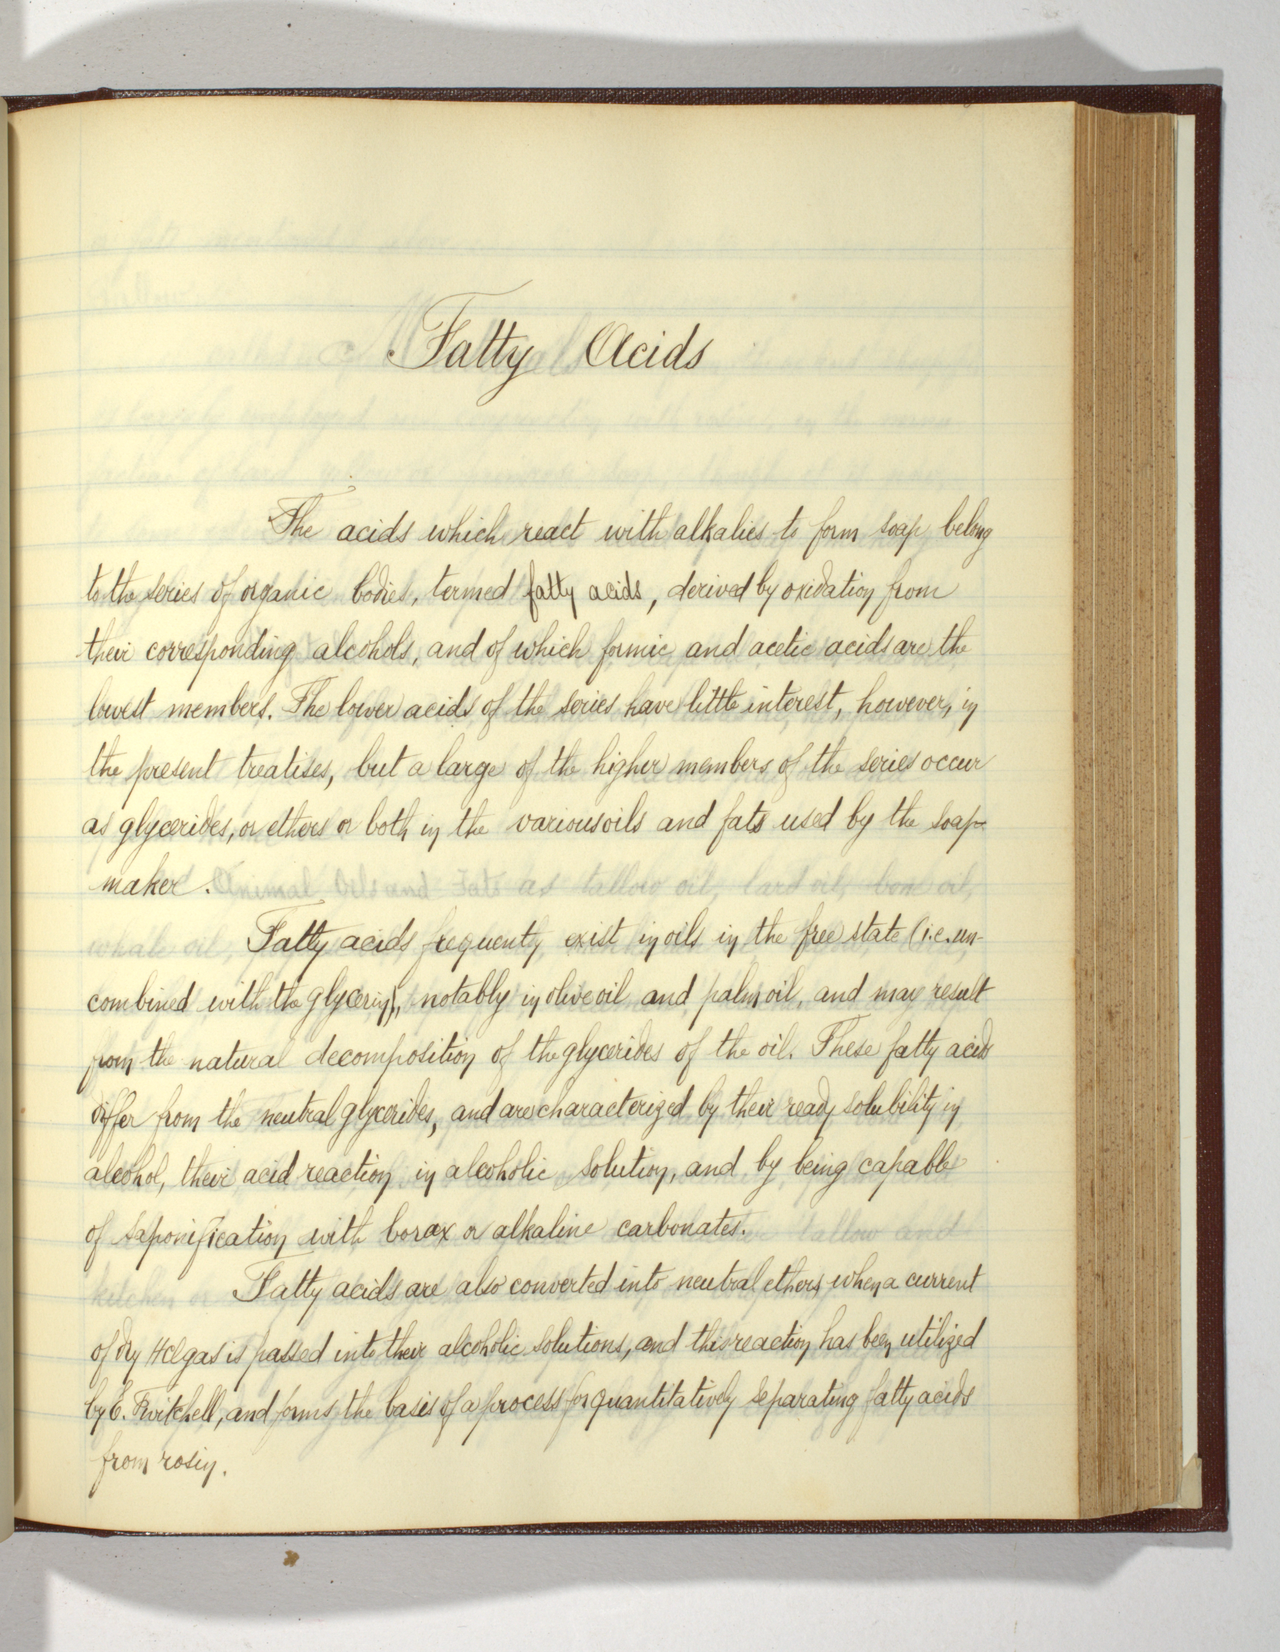 Fatty Acids
The acids which react with alkalies to form soap belong
to the series of organic bodies, termed fatty acids, derived by oxidation from
their corresponding alcohols, and of which formic and acetic acids are the
lowest members. The lower acids of the series have little interest, however, in
the present treatises, but a large of the higher members of the series occur
as glycerides, or ethers or both in the various oils and fats used by the soap-
maker.
Fatty acids frequenty exist in oils in the free state (i.e. un-
combined with the glycerin), notably in olive oil and palm oil, and may result
from the natural decomposition of the glycerides of the oil. These fatty acids
differ from the neutral glycerides, and are characterized by their ready solubility in
alcohol, their acid reaction in alcoholic solution, and by being capable
of saponification with borax or alkaline carbonates.
Fatty acids are also converted into neutral ethers when a current
of dry Hcl gas is passed into their alcoholic solutions, and this reaction has been utilized
by E. Twitchell, and forms the basis of a process for quantitatively separating fatty acids
from rosin.